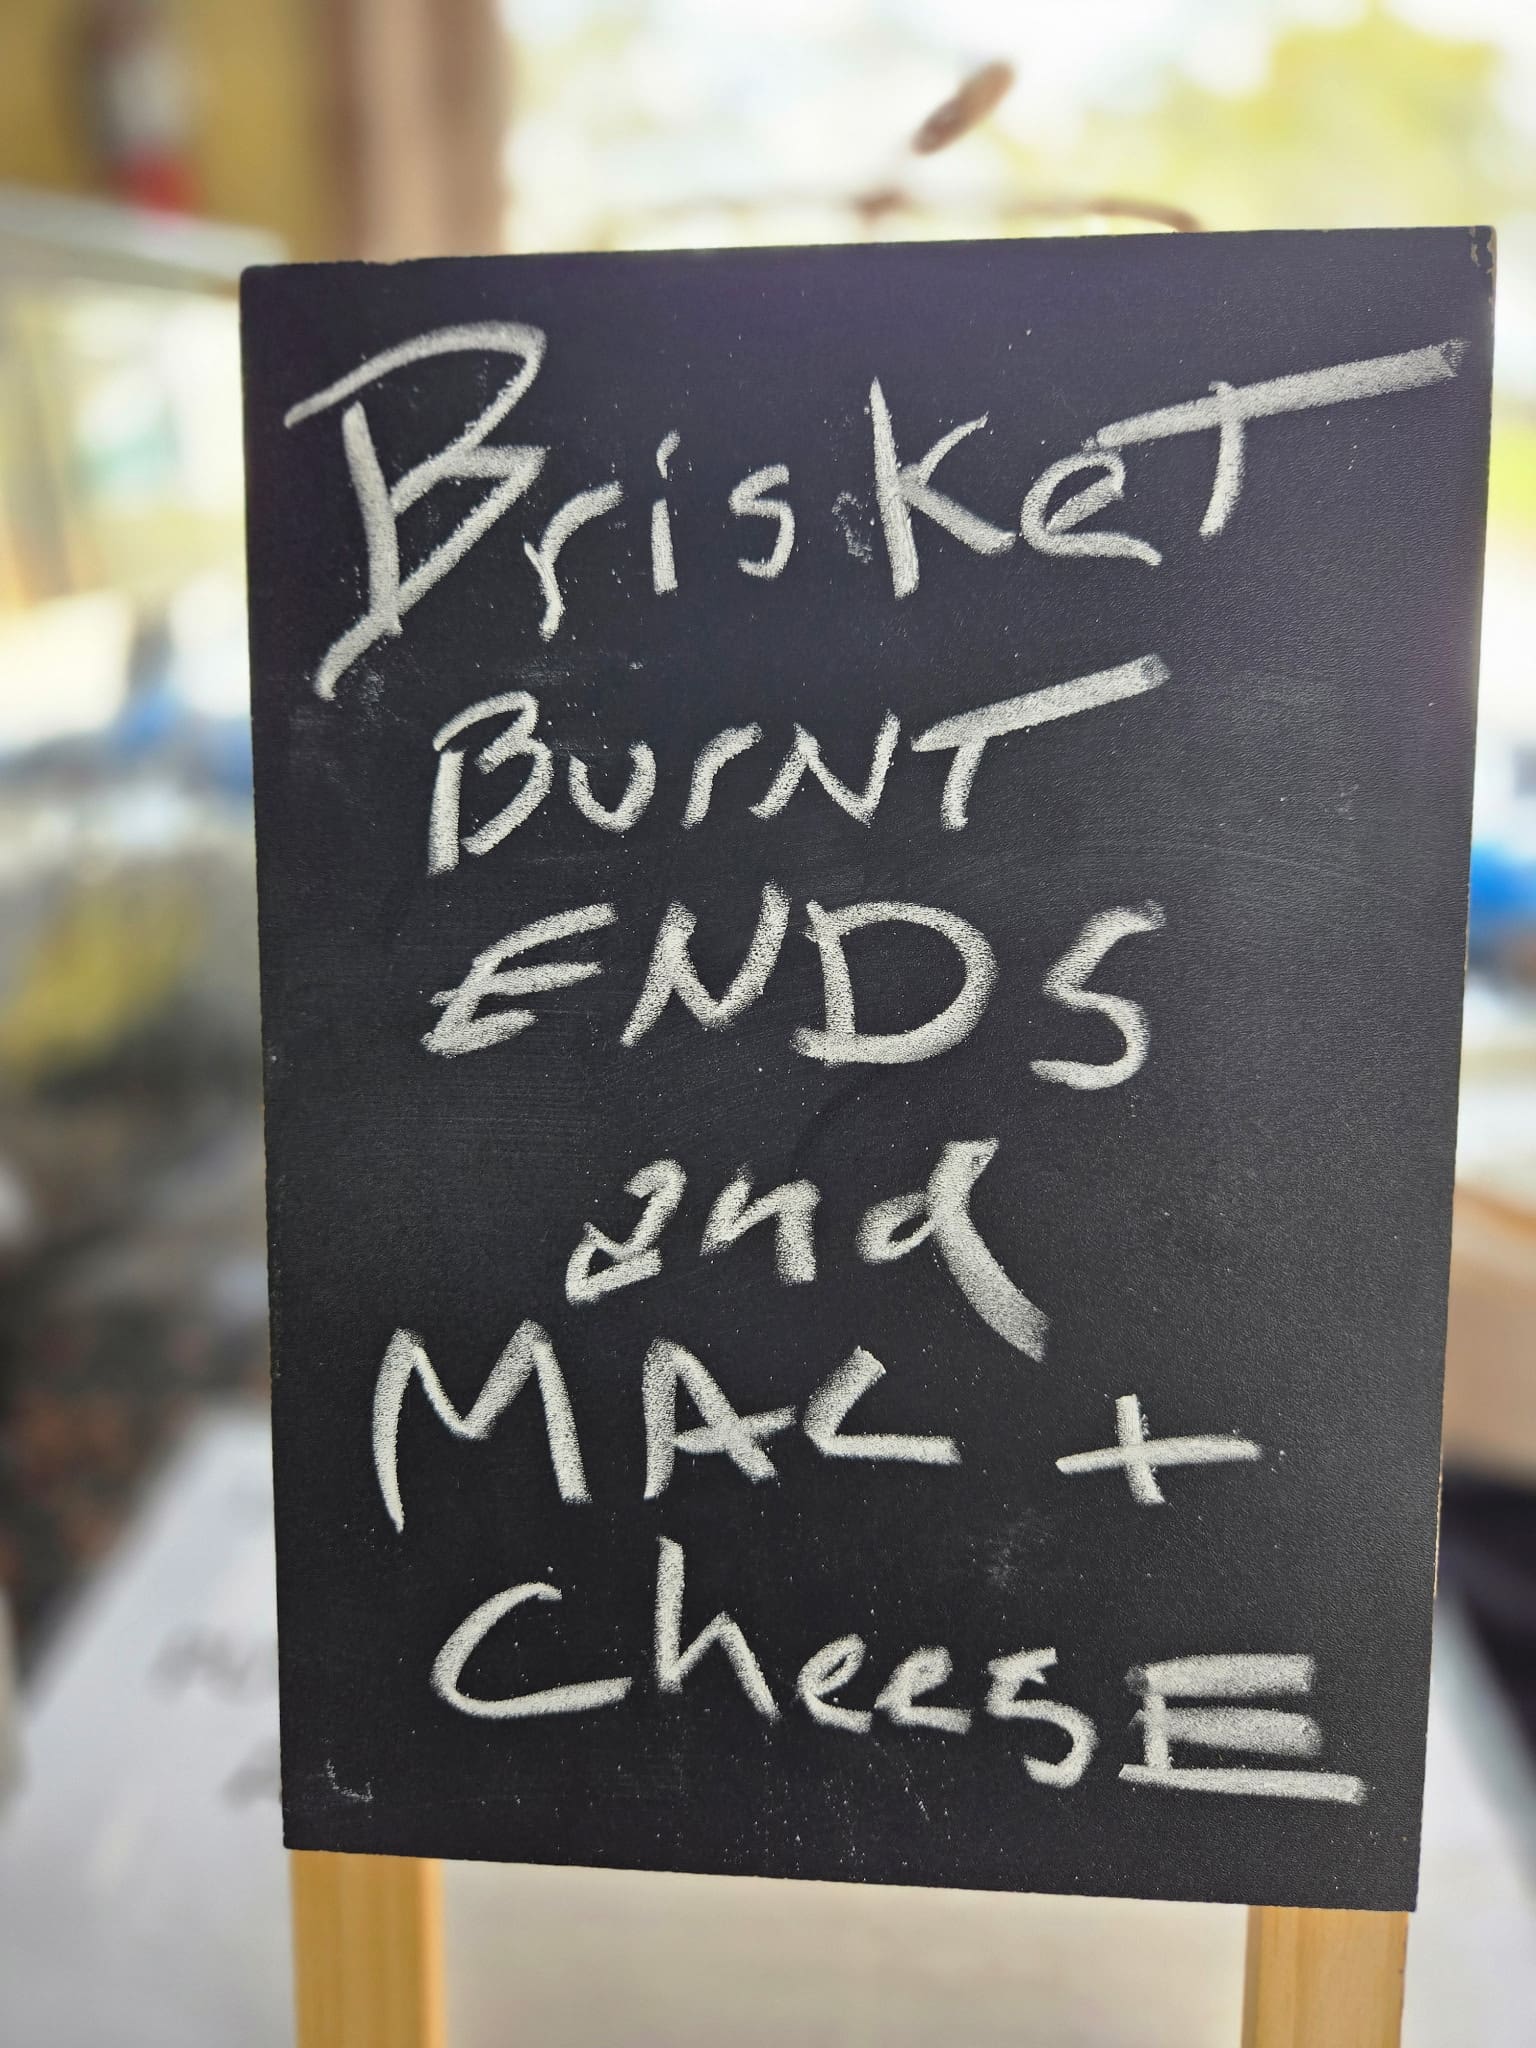 BrisKeT
BurNT
ENDS
and
MAC +
CheesE